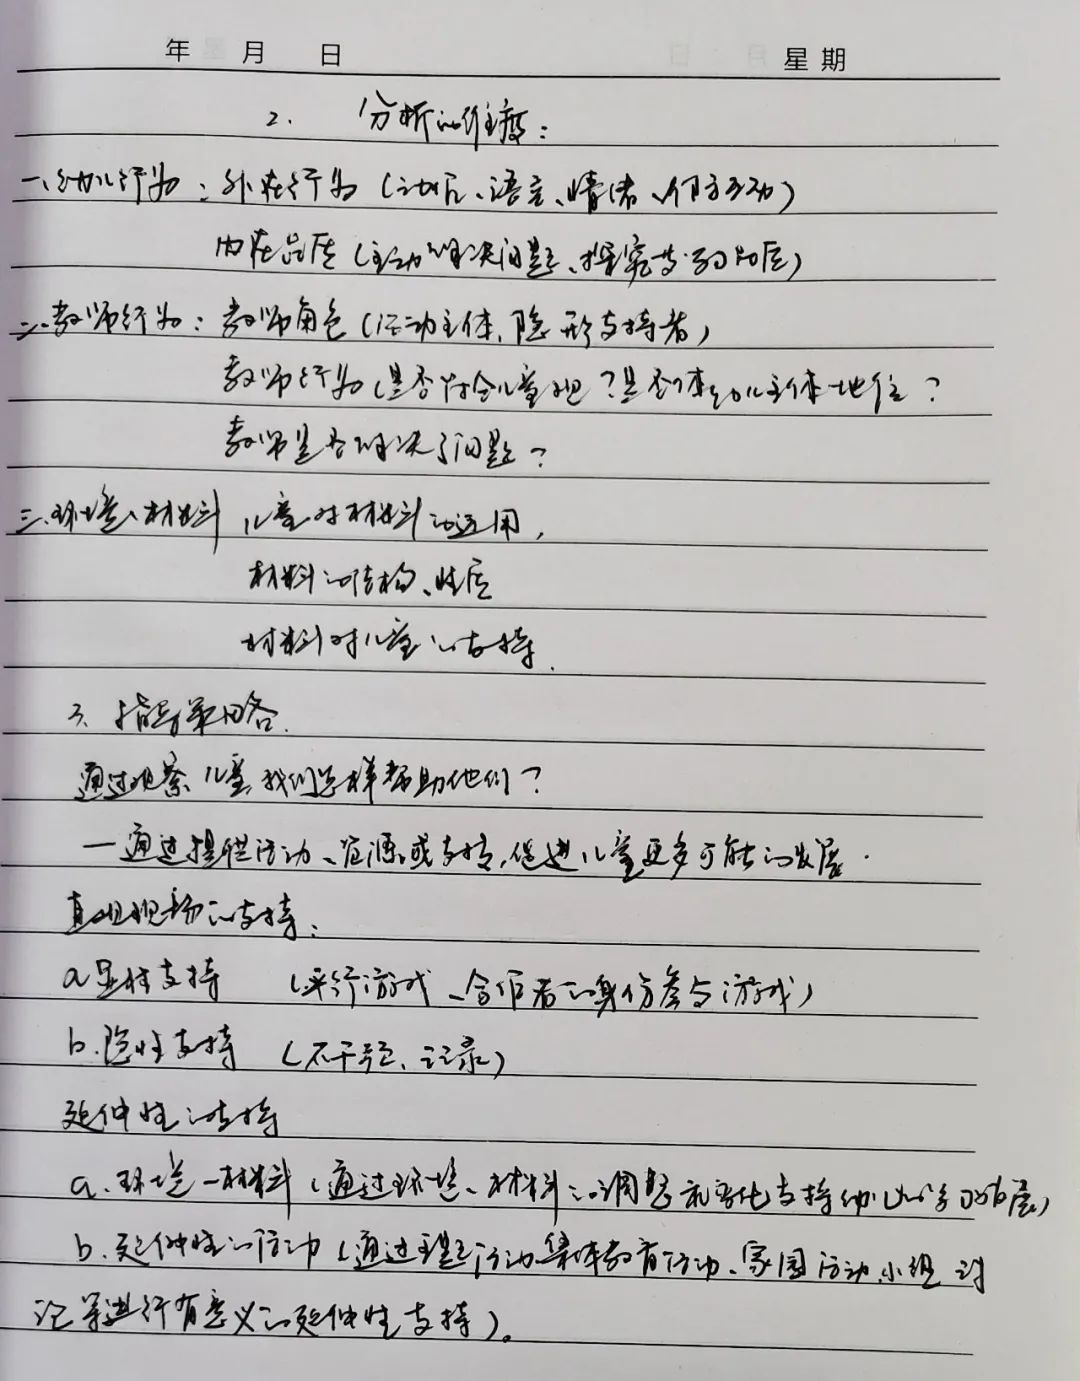 年 月 日 星期
2. 分析的维度：
一、幼儿行为：外在行为（动作、语言、情绪、何方互动）
内在品质（主动解决问题、探究与学习品质）
二、教师行为：教师角色（活动主体、隐形支持者）
教师行为（是否符合儿童观？是否体现幼儿主体地位？
教师是否解决了问题？
三、环境、材料 儿童对材料的运用，
材料的结构、性质
材料对儿童的支持.
3、指导策略.
通过观察儿童，我们怎样帮助他们？
—通过提供活动、资源或支持，促进儿童更多可能的发展.
直观现场的支持：
a 显性支持 （平行游戏、合作者的身份参与游戏）
b.隐性支持 （不干预、记录）
延伸性的支持
a.环境—材料（通过环境、材料的调整和变化支持幼儿的学习发展）
b.延伸性的活动（通过主题活动、集体教育活动、家园活动、小组讨
论等进行有意义的延伸性支持）。